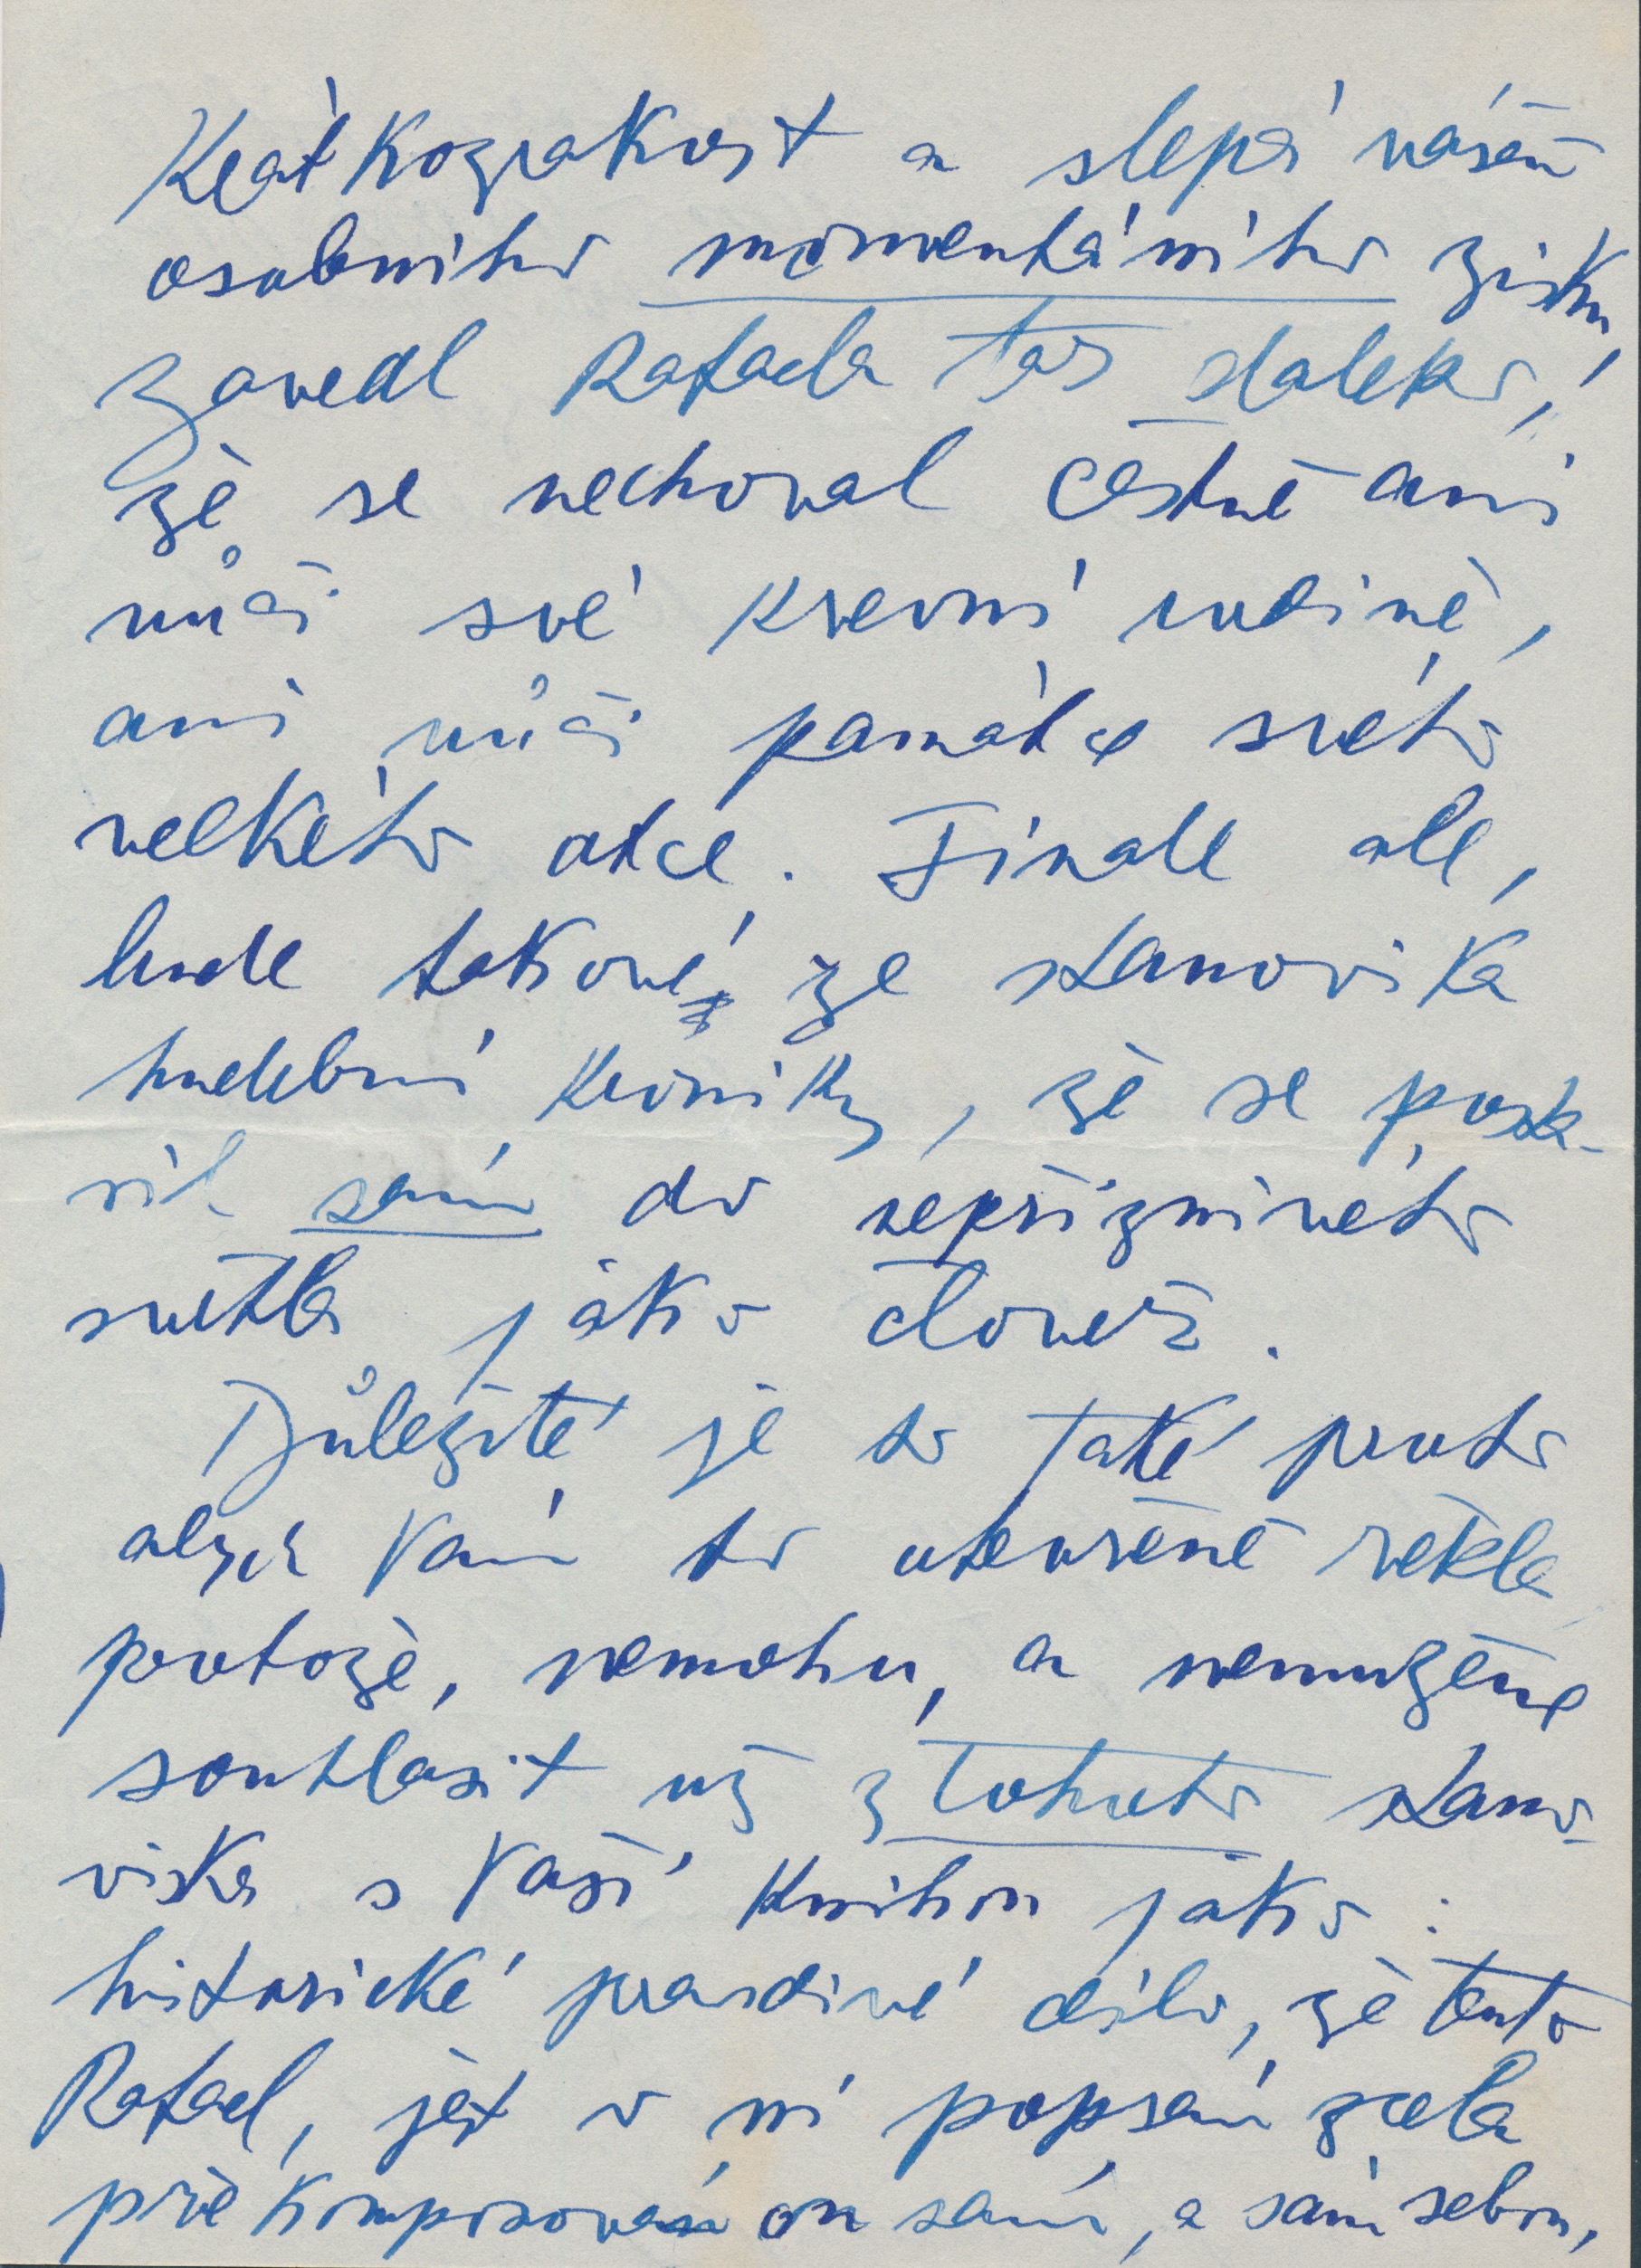 Krátkozrakost a slepá vášeň
osobního momentáního zisku,
zavedl Rafaela tak daleko,
že se nechoval čestně ani
vůči své krevní rodině,
ani vůči památce svého
velkého otce. Finale ale,
bude takové, ze stanoviska
hudební kroniky, že se posta-
vil sám do nepříznivého
světla jako člověk.
Důležité je to také proto
abych Vám to otevřeně řekla
protože, nemohu, a nemužeme
souhlasit už z tohoto stano-
viska s Vaší knihou jako:
historické pravdivé dílo, že tento
Rafael, jest v ní popsán zcela
překomposován on sám, a sám sebou,